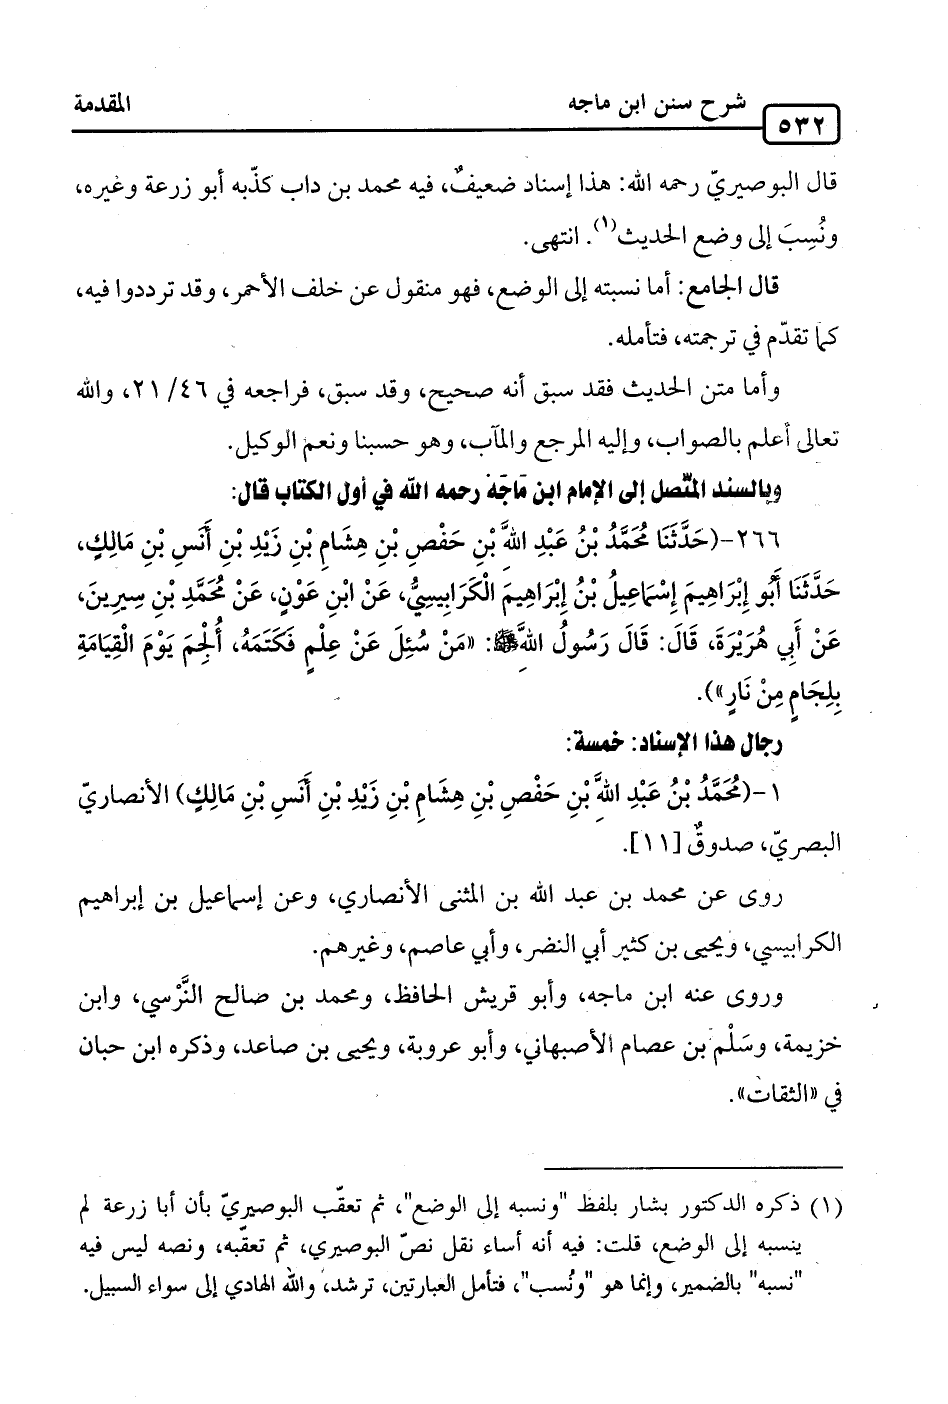 ٥٣٢ شرح سنن ابن ماجه المقدمة
قال البوصيريّ رحمه الله: هذا إسناد ضعيفٌ، فيه محمد بن داب كذّبه أبو زرعة وغيره،
ونُسِبَ إلى وضع الحديث(١). انتهى.
قال الجامع: أما نسبته إلى الوضع، فهو منقول عن خلف الأحمر، وقد ترددوا فيه،
كما تقدّم في ترجمته، فتأمله.
وأما متن الحديث فقد سبق أنه صحيح، وقد سبق، فراجعه في ٢١/٤٦، والله
تعالى أعلم بالصواب، وإليه المرجع والمآب، وهو حسبنا ونعم الوكيل.
وبالسند المتّصل إلى الإمام ابن مَاجَهْ رحمه الله في أول الكتاب قال:
٢٦٦-(حَدَّثَنَا مُحَمَّدُ بْنُ عَبْدِ اللهَِّ بْنِ حَفْصِ بْنِ هِشَامِ بْنِ زَيْدِ بْنِ أَنَسِ بْنِ مَالِكٍ،
حَدَّثَنَا أَبُو إِبْرَاهِيمَ إِسْمَاعِيلُ بْنُ إِبْرَاهِيمَ الْكَرَابِيسِيُّ، عَنْ ابْنِ عَوْنٍ، عَنْ مُحَمَّدِ بْنِ سِيرِينَ،
عَنْ أَبِي هُرَيْرَةَ، قَالَ: قَالَ رَسُولُ اللهَِّ ﷺ: «مَنْ سُئِلَ عَنْ عِلْمٍ فَكَتَمَهُ، أُلْجِمَ يَوْمَ الْقِيَامَةِ
بِلِجَامٍ مِنْ نَارٍ»).
رجال هذا الإسناد: خمسة:
١-(مُحَمَّدُ بْنُ عَبْدِ اللهَِّ بْنِ حَفْصِ بْنِ هِشَامِ بْنِ زَيْدِ بْنِ أَنَسِ بْنِ مَالِكٍ) الأنصاريّ
البصريّ، صدوقٌ [١١].
روى عن محمد بن عبد الله بن المثنى الأنصاري، وعن إسماعيل بن إبراهيم
الكرابيسي، ويحيى بن كثير أبي النضر، وأبي عاصم، وغيرهم.
وروى عنه ابن ماجه، وأبو قريش الحافظ، ومحمد بن صالح النَّرْسي، وابن
خزيمة، وسَلْم بن عصام الأصبهاني، وأبو عروبة، ويحيى بن صاعد، وذكره ابن حبان
في «الثقات».
(١) ذكره الدكتور بشار بلفظ "ونسبه إلى الوضع"، ثم تعقّب البوصيريّ بأن أبا زرعة لم
ينسبه إلى الوضع، قلت: فيه أنه أساء نقل نصّ البوصيري، ثم تعقّبه، ونصه ليس فيه
"نسبه" بالضمير، وإنما هو "ونُسب"، فتأمل العبارتين، ترشد، والله الهادي إلى سواء السبيل.